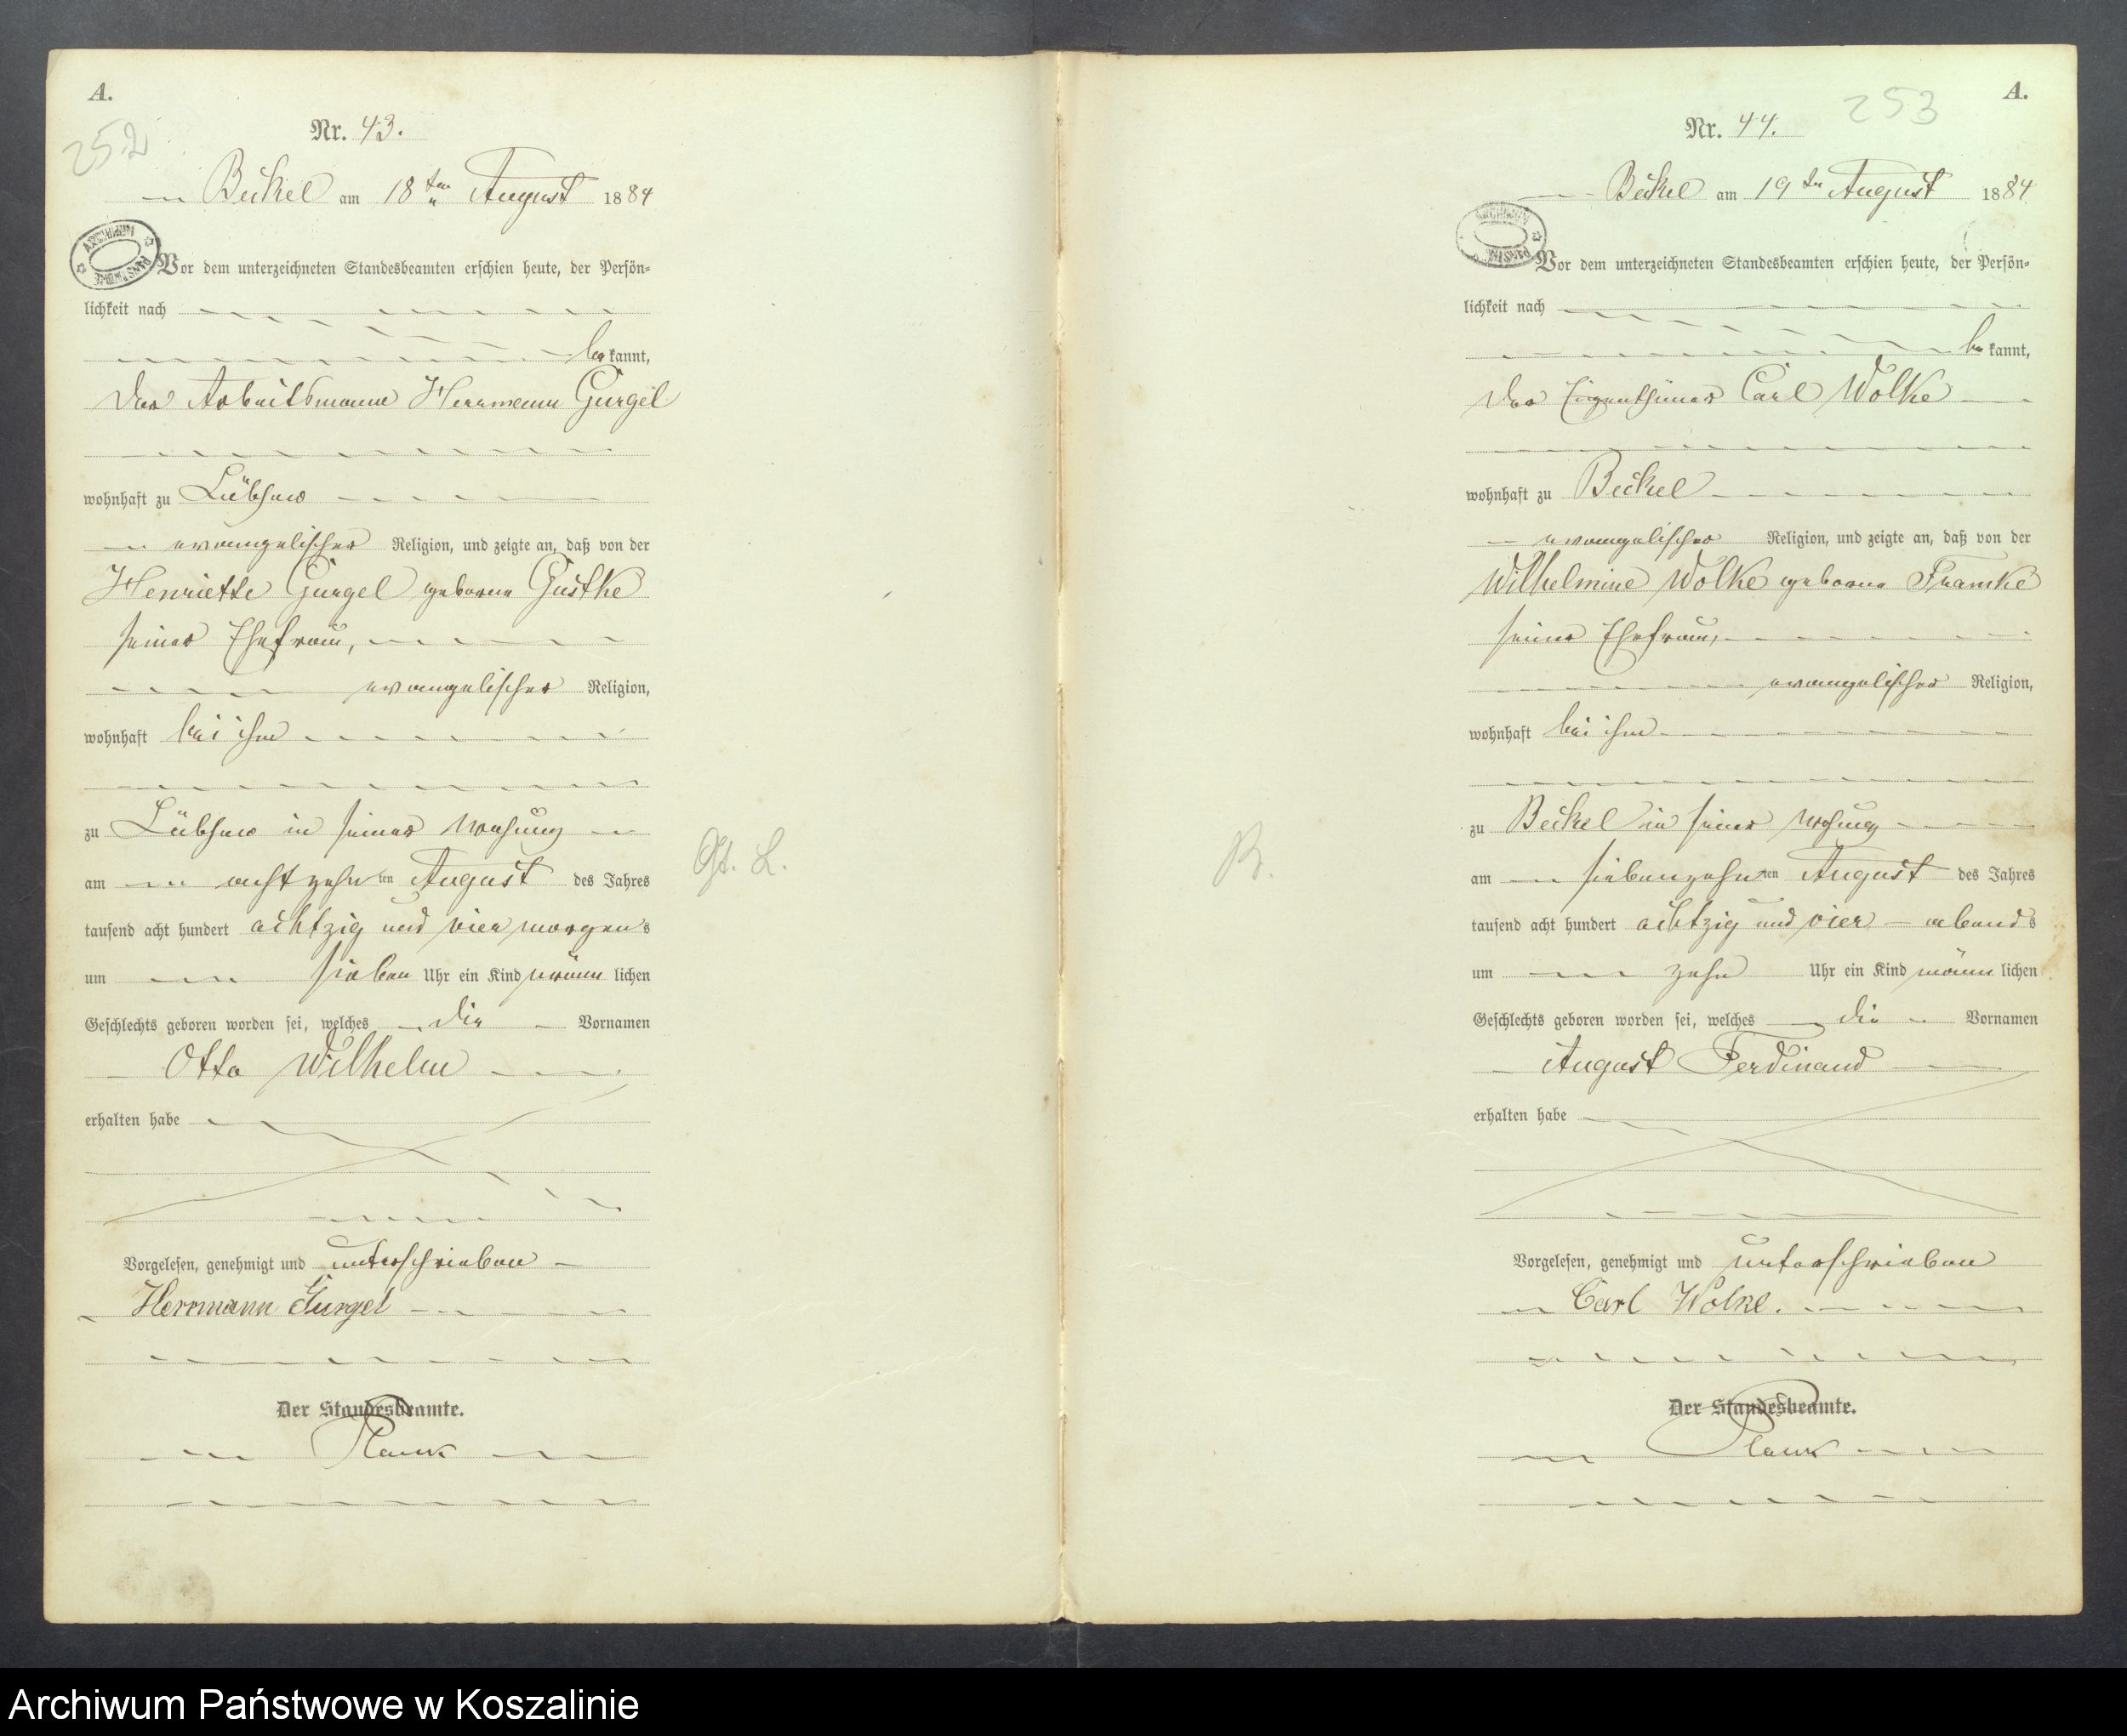 A.
252
Nr. 43.
Beckel am 18ten August 1884
ARCHIWUM
Vor dem unterzeichneten Standesbeamten erschien heute, der Persön=
lichkeit nach
bekannt,
der Arbeitsmann Herrmann Gurgel
wohnhaft zu Lübzow
evangelischer Religion, und zeigte an, daß von der
Henriette Gurgel geborne Gustke
seiner Ehefrau,
evangelischer Religion,
wohnhaft bei ihm
zu Lübzow in seiner Wohnung
am achtzehnten August des Jahres
tausend acht hundert achtzig und vier morgens
um sieben Uhr ein Kind männlichen
Geschlechts geboren worden sei, welches die Vornamen
Otto Wilhelm
erhalten habe
Vorgelesen, genehmigt und unterschrieben
Herrmann Gurgel
Der Standesbeamte.
L.
A.
253
Nr. 44.
Beckel am 19ten August 1884
ARCHIWUM
Vor dem unterzeichneten Standesbeamten erschien heute, der Persön=
lichkeit nach
bekannt,
der Eigenthümer Carl Wolke
wohnhaft zu Beckel
evangelischer Religion, und zeigte an, daß von der
Wilhelmine Wolke geborne Framke
seiner Ehefrau,
evangelischer Religion,
wohnhaft bei ihm
zu Beckel in seiner Wohnung
am siebenzehnten August des Jahres
tausend acht hundert achtzig und vier abends
um zehn Uhr ein Kind männlichen
Geschlechts geboren worden sei, welches die Vornamen
August Ferdinand
erhalten habe
Vorgelesen, genehmigt und unterschrieben
Carl Wolke.
Der Standesbeamte.
B.
Archiwum Państwowe w Koszalinie